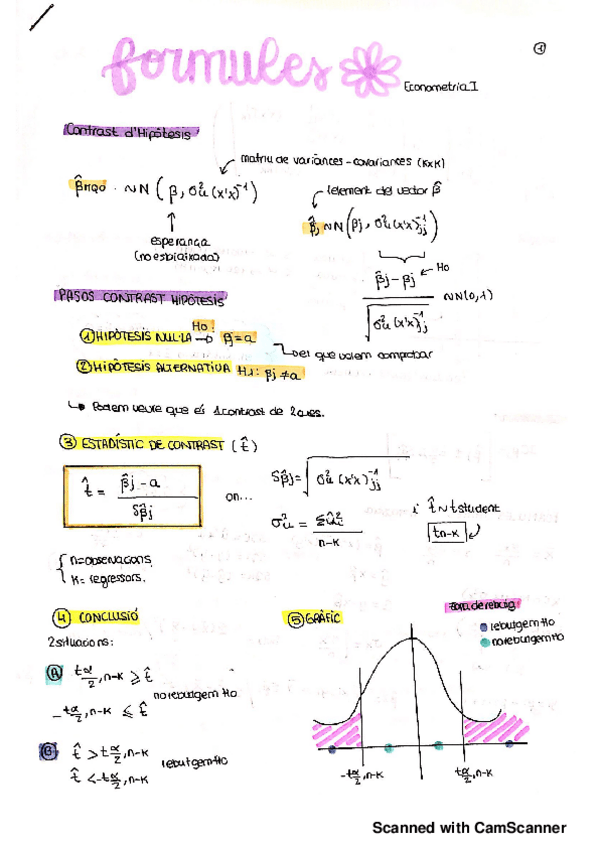 formules
①
Econometria I
Contrast d'Hipòtesis
matriu de variances-covariances (KxK)
β̂MQO ∼ N (β, σ²u (x'x)⁻¹)
element del vector β̂
β̂j ∼ N (βj, σ²u (x'x)⁻¹jj)
esperança
(no esbiaixada)
β̂j - βj ← H0
√σ²u (x'x)⁻¹jj
∼ N(0,1)
PASOS CONTRAST HIPÒTESIS
① HIPÒTESIS NUL·LA → H0: βj = a
el que volem comprobar
② HIPÒTESIS ALTERNATIVA H1: βj ≠ a
↳ Podem veure que és 1 contrast de 2 cues.
③ ESTADÍSTIC DE CONTRAST (t̂)
t̂ = β̂j - a / Sβ̂j
on...
Sβ̂j = √σ²u (x'x)⁻¹jj
σ²u = Σû²t / n-K
i t̂ ∼ t student
tn-K
{ n = observacions
K = regressors.
④ CONCLUSIÓ
2 situacions:
Ⓐ tα/2, n-K ⩾ t̂
no rebutgem H0
-tα/2, n-K ⩽ t̂
Ⓑ t̂ > tα/2, n-K
rebutgem H0
t̂ < -tα/2, n-K
⑤ GRÀFIC
Zona de rebuig
rebutgem H0
no rebutgem H0
-tα/2, n-K
tα/2, n-K
Scanned with CamScanner